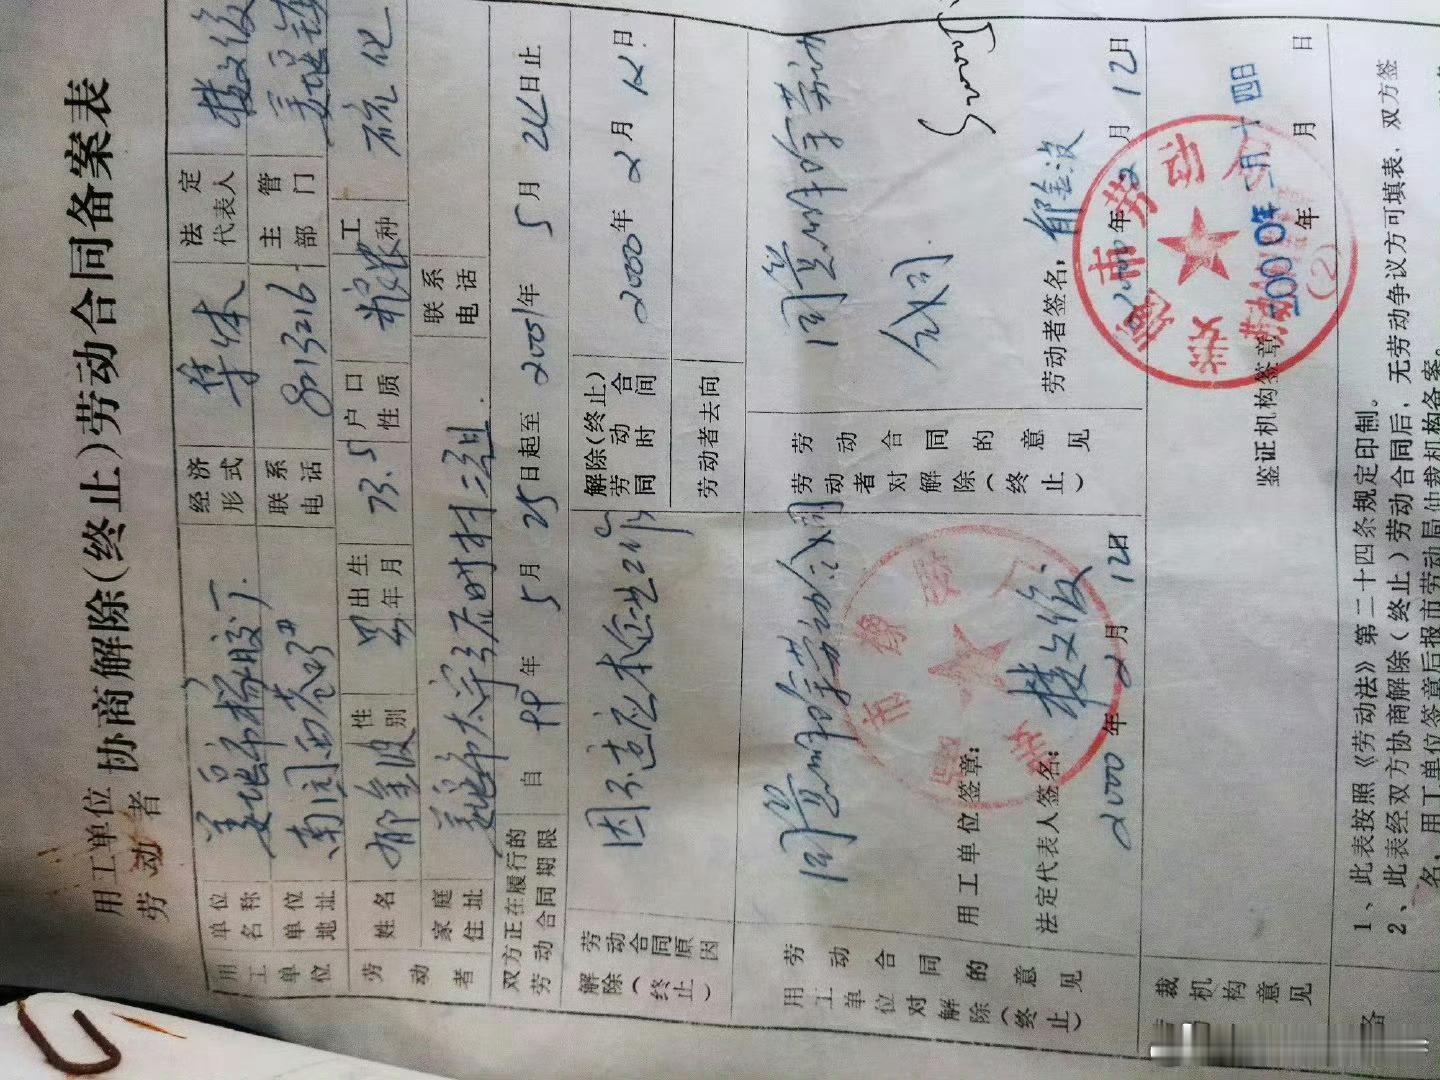 用工单位
劳动者
协商解除(终止)劳动合同备案表
用工单位
单位名称
姜堰市橡胶厂
经济形式
集体
法定代表人
楼文俊
单位地址
联系电话
8813216
主管部门
劳动者
姓名
郁金波
性别
男
出生年月
73.5
户口性质
工种
硫化
家庭住址
姜堰市太宇
村三组
联系电话
双方正在履行的劳动合同期限
自 99 年 5 月 25 日起至 2001 年 5 月 24 日止
解除(终止)劳动合同原因
因不适应本企业工作
解除(终止)劳动合同时间
2000 年 2 月 12 日
劳动者去向
用工单位对解除(终止)劳动合同的意见
同意解除劳动合同
用工单位签章:
法定代表人签名: 楼文俊
2000 年 2 月 12 日
劳动者对解除(终止)劳动合同的意见
同意解除劳动合同
劳动者签名: 郁金波
年 2 月 12 日
裁机构意见
鉴证机构签章
2000年二月十四日
年 月 日
市劳动
(2)
1、此表按照《劳动法》第二十四条规定印制。
2、此表经双方协商解除(终止)劳动合同后,无劳动争议方可填表,双方签
名,用工单位签章后报市劳动局仲裁机构备案。